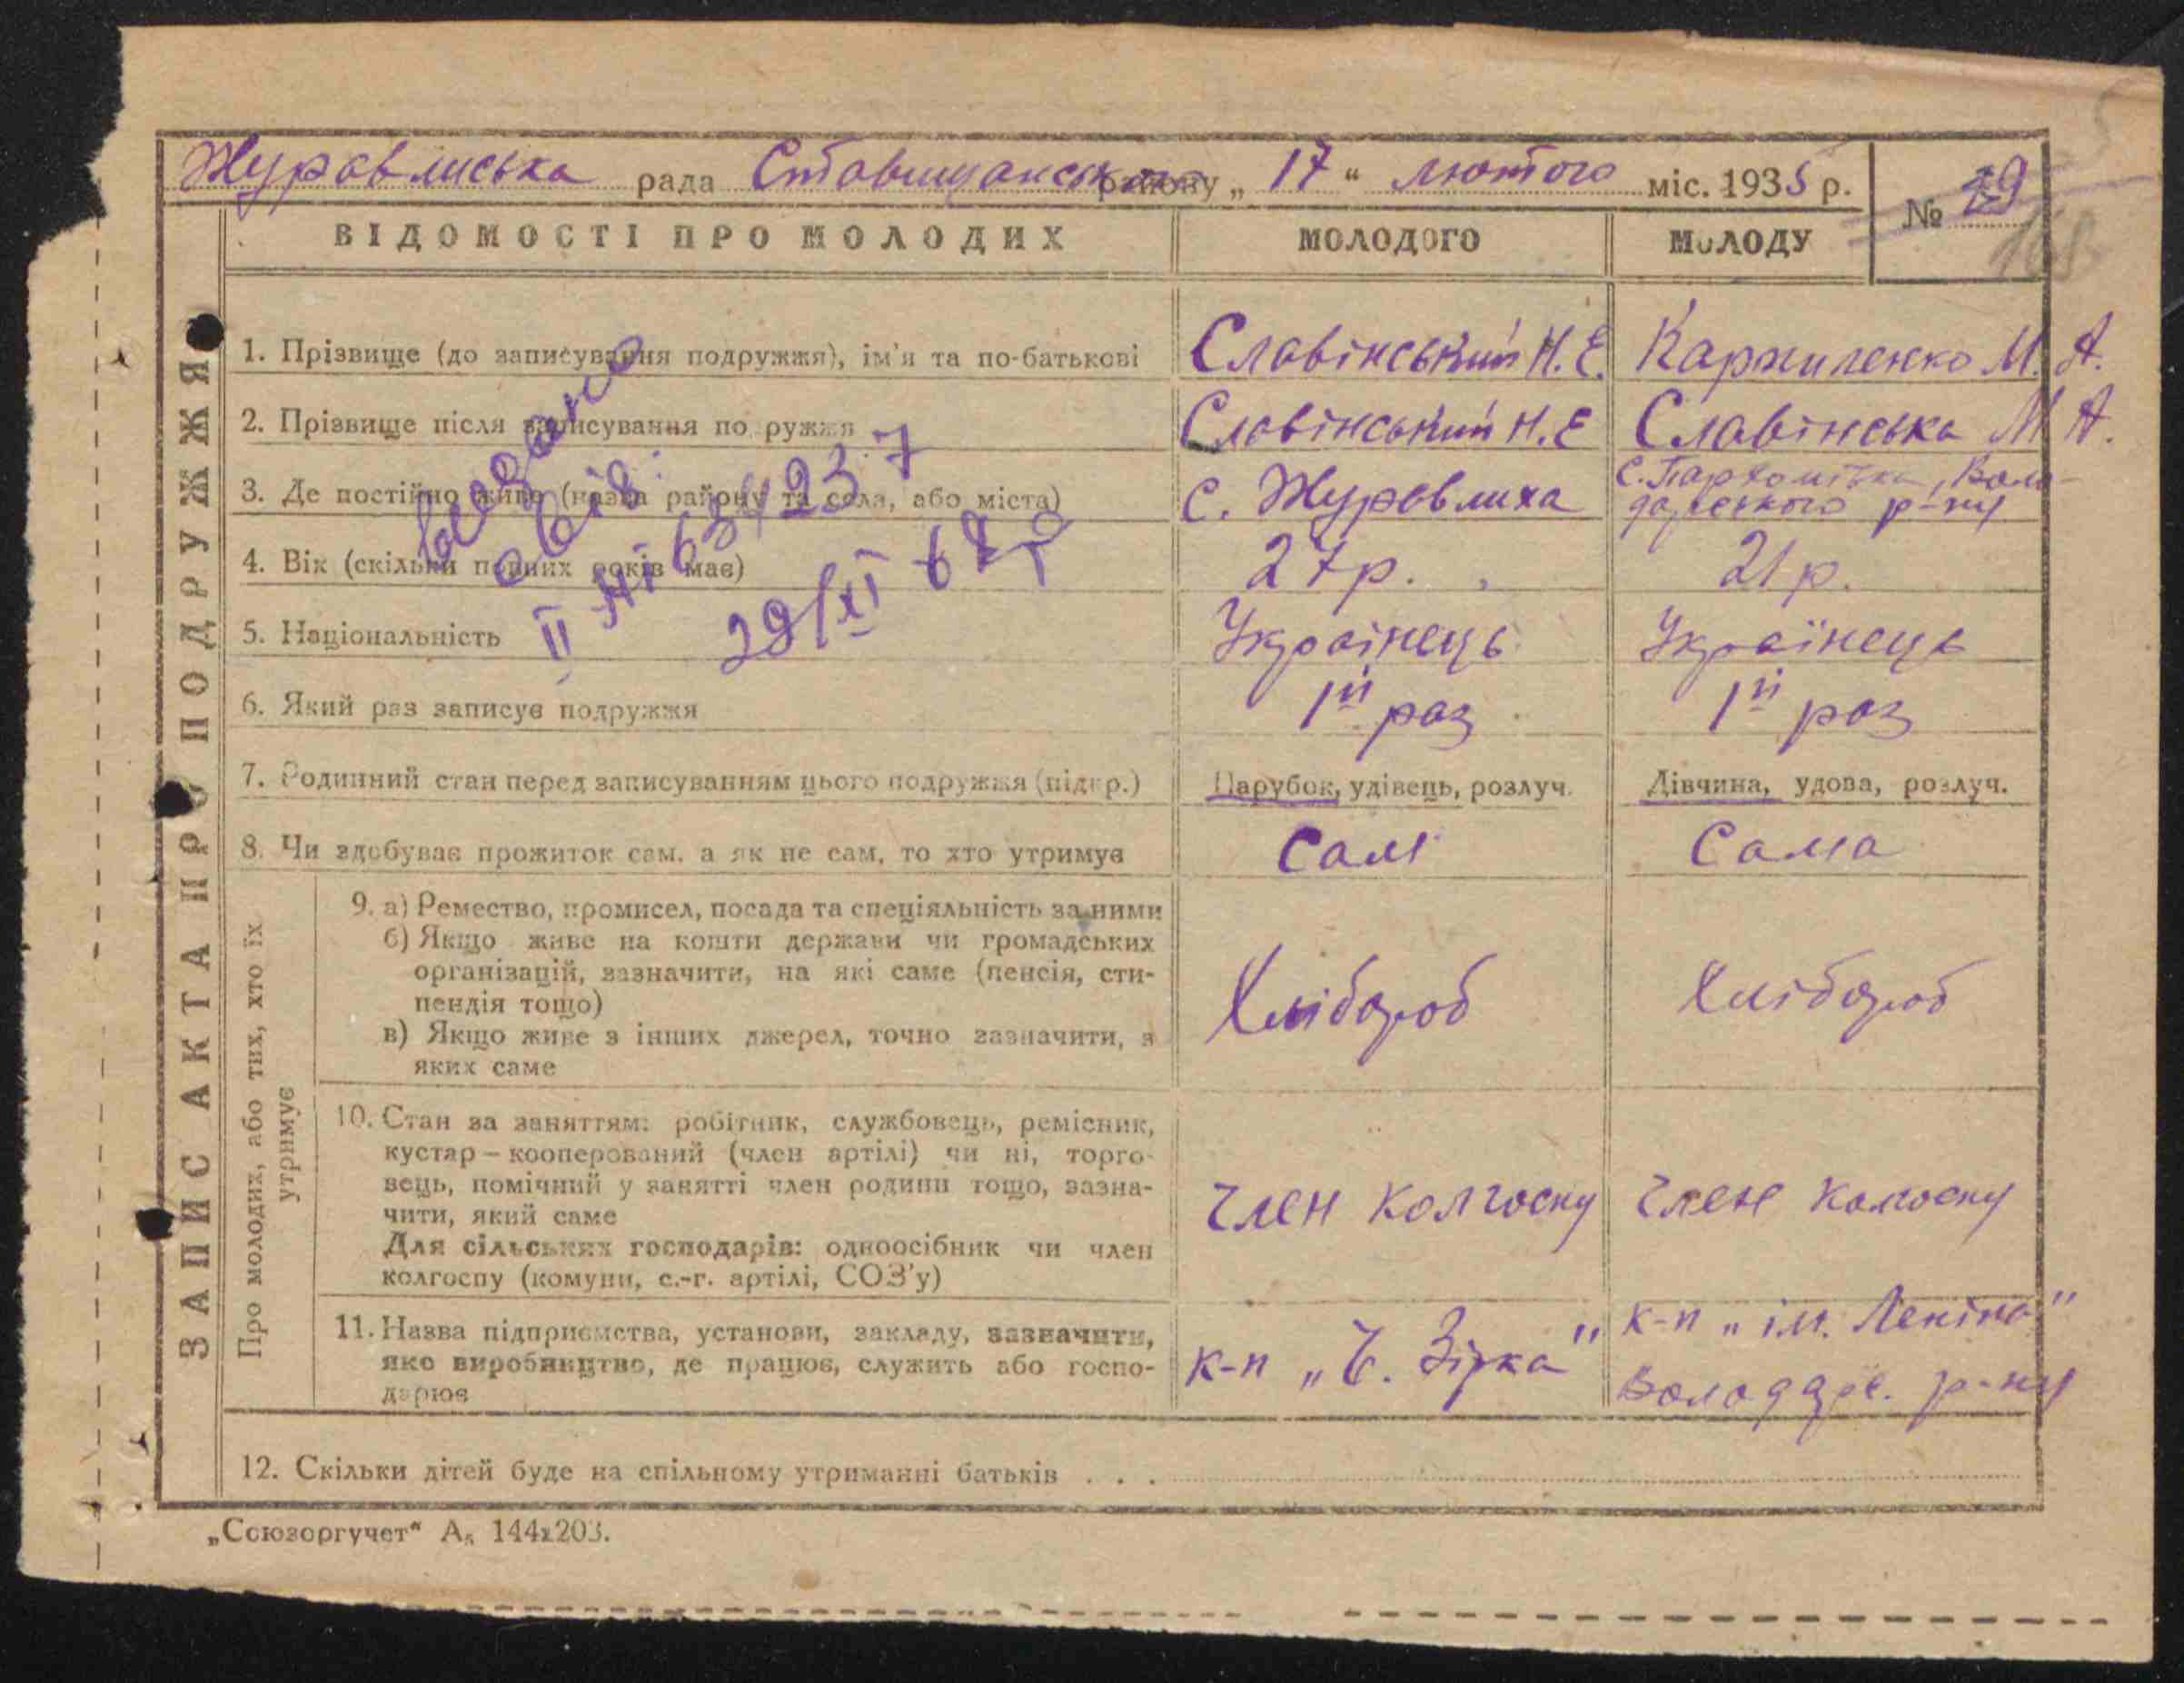 Журавлиська рада Ставищанського району „ 17 “ лютого міс. 1935 р.
№ 29
ВІДОМОСТІ ПРО МОЛОДИХ МОЛОДОГО МОЛОДУ
ЗАПИС АКТА ПРО ПОДРУЖЖЯ
1. Прізвище (до записування подружжя), ім'я та по-батькові Славінський Н. Е. Карпиленко М. А.
2. Прізвище після записування подружжя Славінський Н. Е Славінська М А.
3. Де постійно живе (назва району та села, або міста) с. Журавлиха с. Пархомівка, Воло-
дарського р-ну
4. Вік (скільки повних років має) 27 р. 21 р.
5. Національність Українець Українець
6. Який раз записує подружжя 1й раз 1й раз
7. Родинний стан перед записуванням цього подружжя (підкр.) Парубок, удівець, розлуч. Дівчина, удова, розлуч.
8. Чи здобуває прожиток сам, а як не сам, то хто утримує Сам Сама
Про молодих, або тих, хто їх
утримує
9. а) Ремество, промисел, посада та спеціяльність за ними
б) Якщо живе на кошти держави чи громадських
організацій, зазначити, на які саме (пенсія, сти-
пендія тощо)
в) Якщо живе з інших джерел, точно зазначити, з
яких саме
Хлібороб Хлібороб
10. Стан за заняттям: робітник, службовець, ремісник,
кустар – кооперований (член артілі) чи ні, торго-
вець, помічний у занятті член родини тощо, зазна-
чити, який саме
Для сільських господарів: одноосібник чи член
колгоспу (комуни, с.-г. артілі, СОЗ'у)
член колгоспу член колгоспу
11. Назва підприємства, установи, закладу, зазначити,
яке виробництво, де працює, служить або госпо-
дарює
к-п „Ч. Зірка" к-п „ім. Леніна"
Володарс. р-ну
12. Скільки дітей буде на спільному утриманні батьків . . .
видано
свід.
II 29/XI 67 г
„Союзоргучет“ А5 144х203.